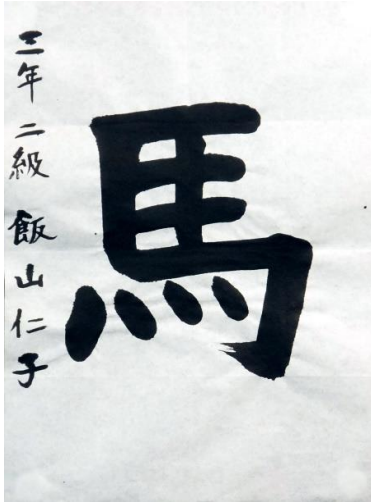 馬
三年 二級 飯山仁子